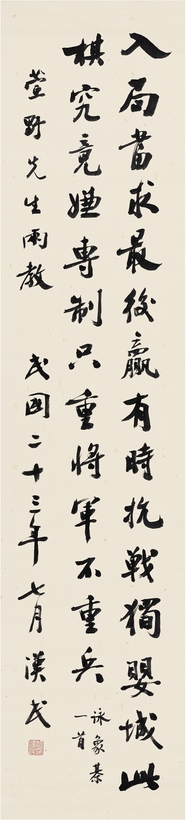 入局當求最後贏有時抗戰獨嬰城此
棋究竟嫌專制只重將軍不重兵
詠象棊
一首
萱野先生兩教
民國二十三年七月漢民